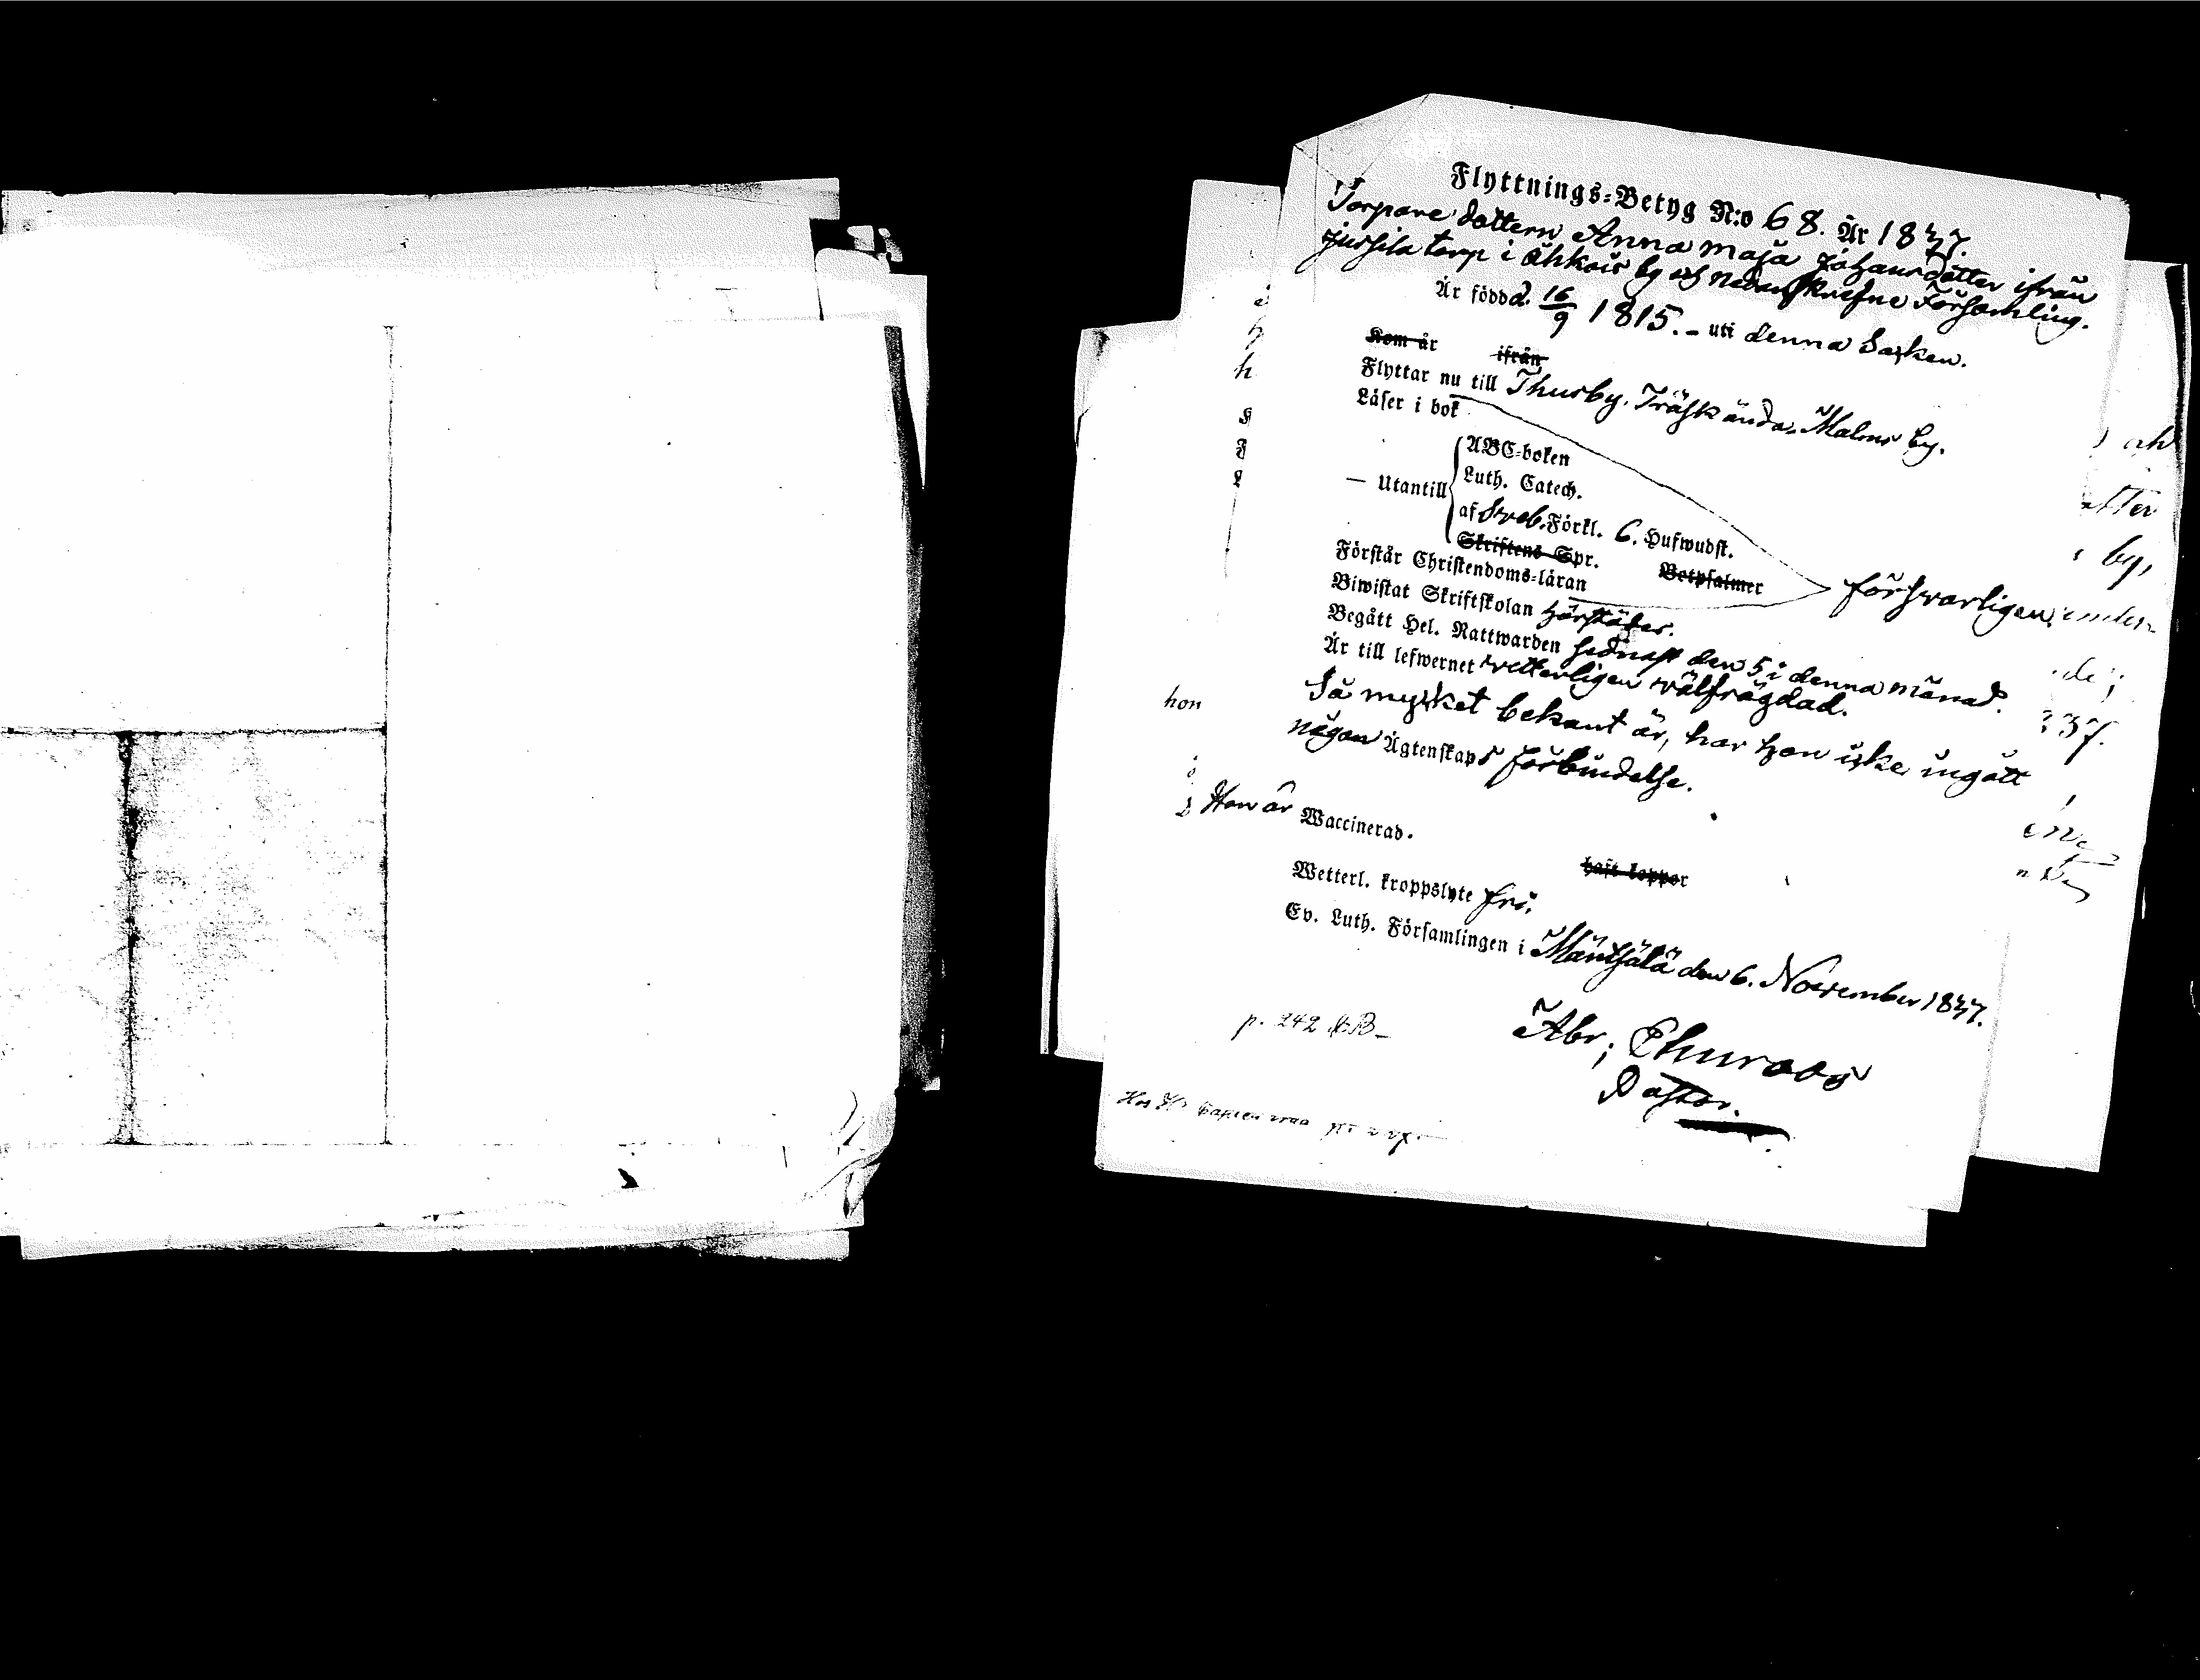 Flyttnings-Betyg N:o 68. År 1837.
Torpare dottern Anna Maja Johansdotter ifrån
Jussila torp i Ohkois by och nedanskrefne Församling.
Är född d. 16/9 1815. - uti denna Socken.
Kom år ifrån
Flyttar nu till Thusby. Träskända, Malms by.
Läser i bok
— Utantill
ABC-boken
Luth. Catech.
af Sveb. Förkl. 6. Hufwudst.
Skriftens Spr. Botpsalmer
försvarligen
Förstår Christendoms-läran
Biwistat Skriftskolan
Begått Hel. Nattwarden sednast den 5 i denna månad.
Är till lefwernet vetterligen välfrägdad.
Så mycket bekant är, har hon icke ingått
någon Ägtenskaps förbindelse.
Hon är Waccinerad.
haft koppor
Wetterl. kroppslyte fri.
Ev. Luth. Församlingen i Mäntsälä den 6. November 1837.
Abr; Thuroos
Pastor.
p. 242
hon
by,